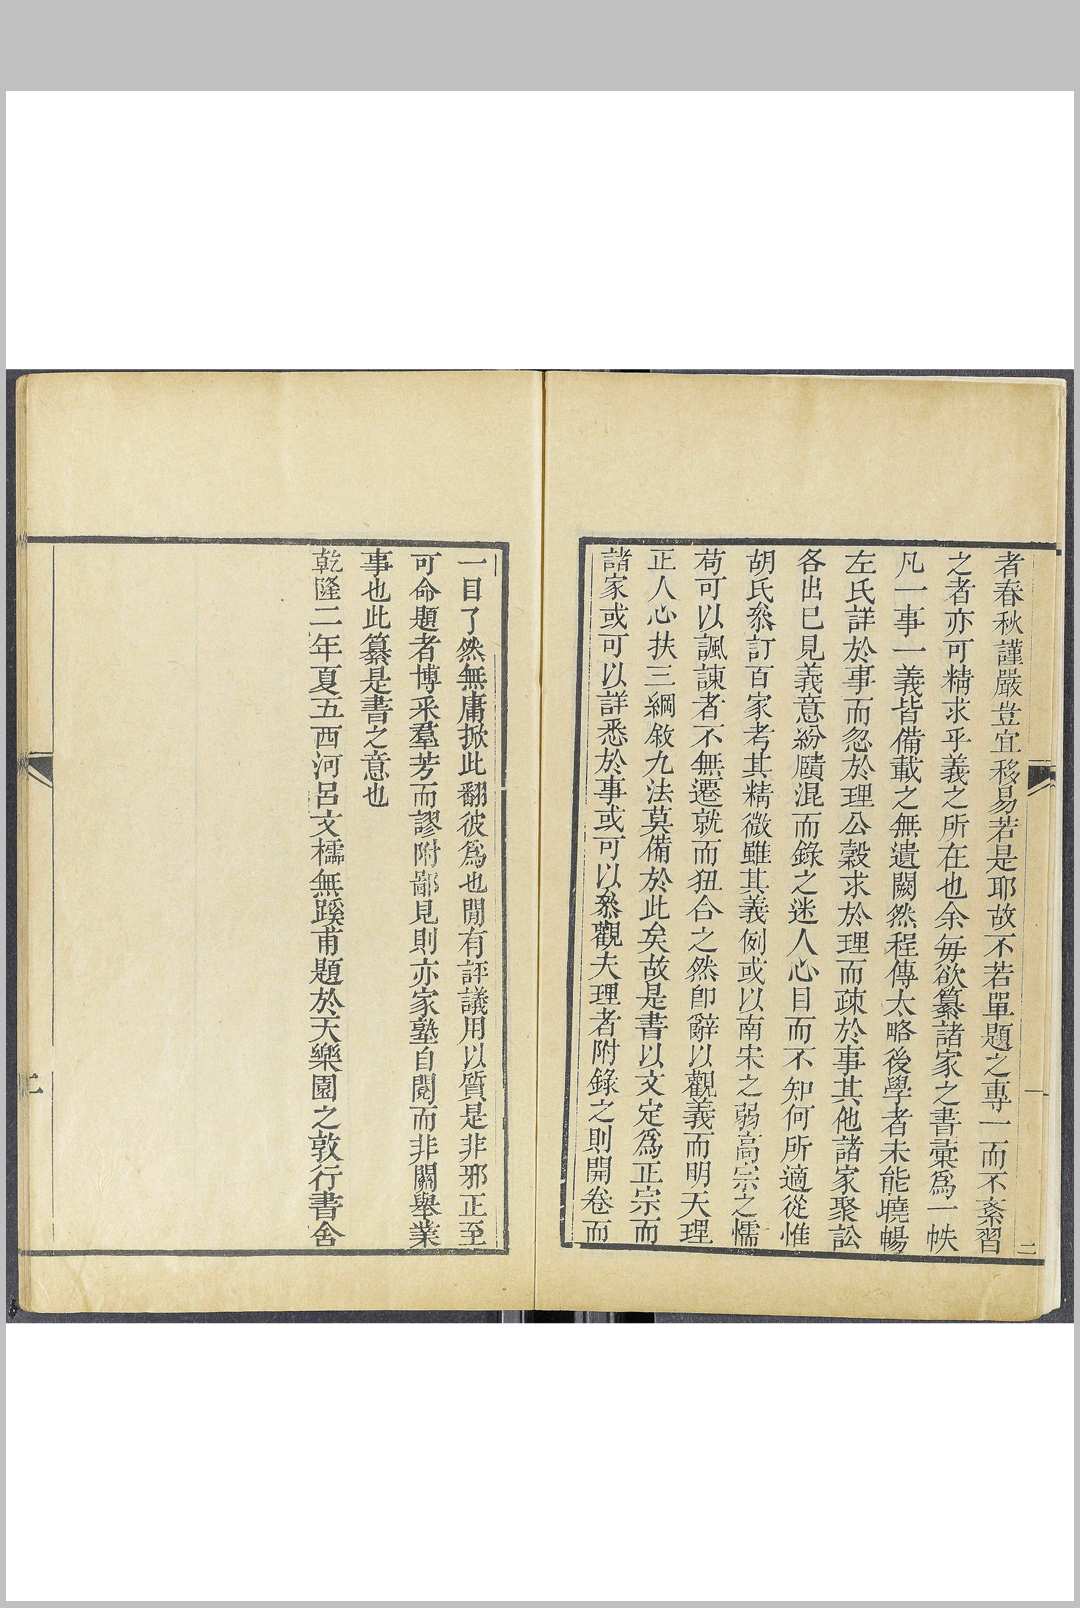 者春秋謹嚴豈宜移易若是耶故不若單題之專一而不紊習
之者亦可精求乎義之所在也余每欲纂諸家之書彙爲一帙
凡一事一義皆備載之無遺闕然程傳太略後學者未能曉暢
左氏詳於事而忽於理公穀求於理而疎於事其他諸家聚訟
各出已見義意紛賾混而錄之迷人心目而不知何所適從惟
胡氏叅訂百家考其精微雖其義例或以南宋之弱高宗之懦
苟可以諷諫者不無遷就而狃合之然卽辭以觀義而明天理
正人心扶三綱敘九法莫備於此矣故是書以文定爲正宗而
諸家或可以詳悉於事或可以叅觀夫理者附錄之則開卷而
二
一目了然無庸掀此翻彼爲也閒有評議用以質是非邪正至
可命題者博采羣芳而謬附鄙見則亦家塾自閱而非關舉業
事也此纂是書之意也
乾隆二年夏五西河呂文櫺無蹊甫題於天樂園之敦行書舍